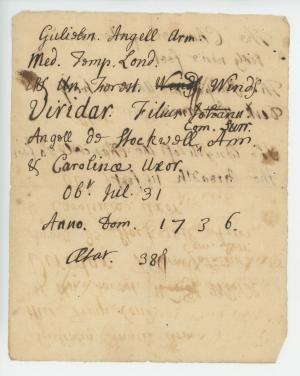 Gulielm. Angell Arm
Med. Temp. Lond.
& Forest. Winds.
Viridar. Filius
Com. Surr.
Angell de Stockwell, Arm.
& Carolinæ Uxor.
Ob.t Jul. 31
Anno. Dom. 1736.
Ætat. 38